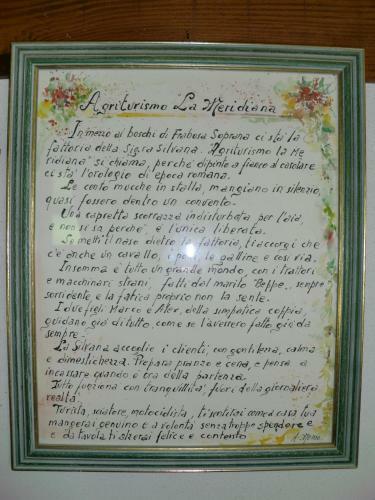 Agriturismo La Meridiana
In mezzo ai boschi di Frabosa Soprana ci sta' la
fattoria della Sig.ra Silvana. Agriturismo la Me
ridiana" si chiama, perche' dipinto a fianco al casolare
ci sta' l'orologio di epoca romana.
Le cento mucche in stalla, mangiano in silenzio,
quasi fossero dentro un convento.
Una capretta scorrazza indisturbata per l'aia,
e non si sa perche', e l'unica liberata.
Se metti il naso dietro la fattoria, ti accorgi che
c'è anche un cavallo, i polli, le galline e così via.
Insomma è tutto un grande mondo, con i trattori
e macchinari strani, fatti dal marito Beppe, sempre
sorridente e la fatica proprio non la sente.
I due figli Marco e Alex, della simpatica coppia,
guidano già di tutto, come se l'avessero fatto già da
sempre.
La Silvana accoglie i clienti, con gentilezza, calma
e dimestichezza. Prepara pranzo e cena, e pensa a
incassare quando è ora della partenza.
Tutto funziona con tranquillità, fuori della giornaliera
realtà.
Turista, sciatore, motociclista, ti sentirai come a casa tua
mangerai genuino e a volontà senza troppo spendere e
e da tavola ti alzerai felice e contento